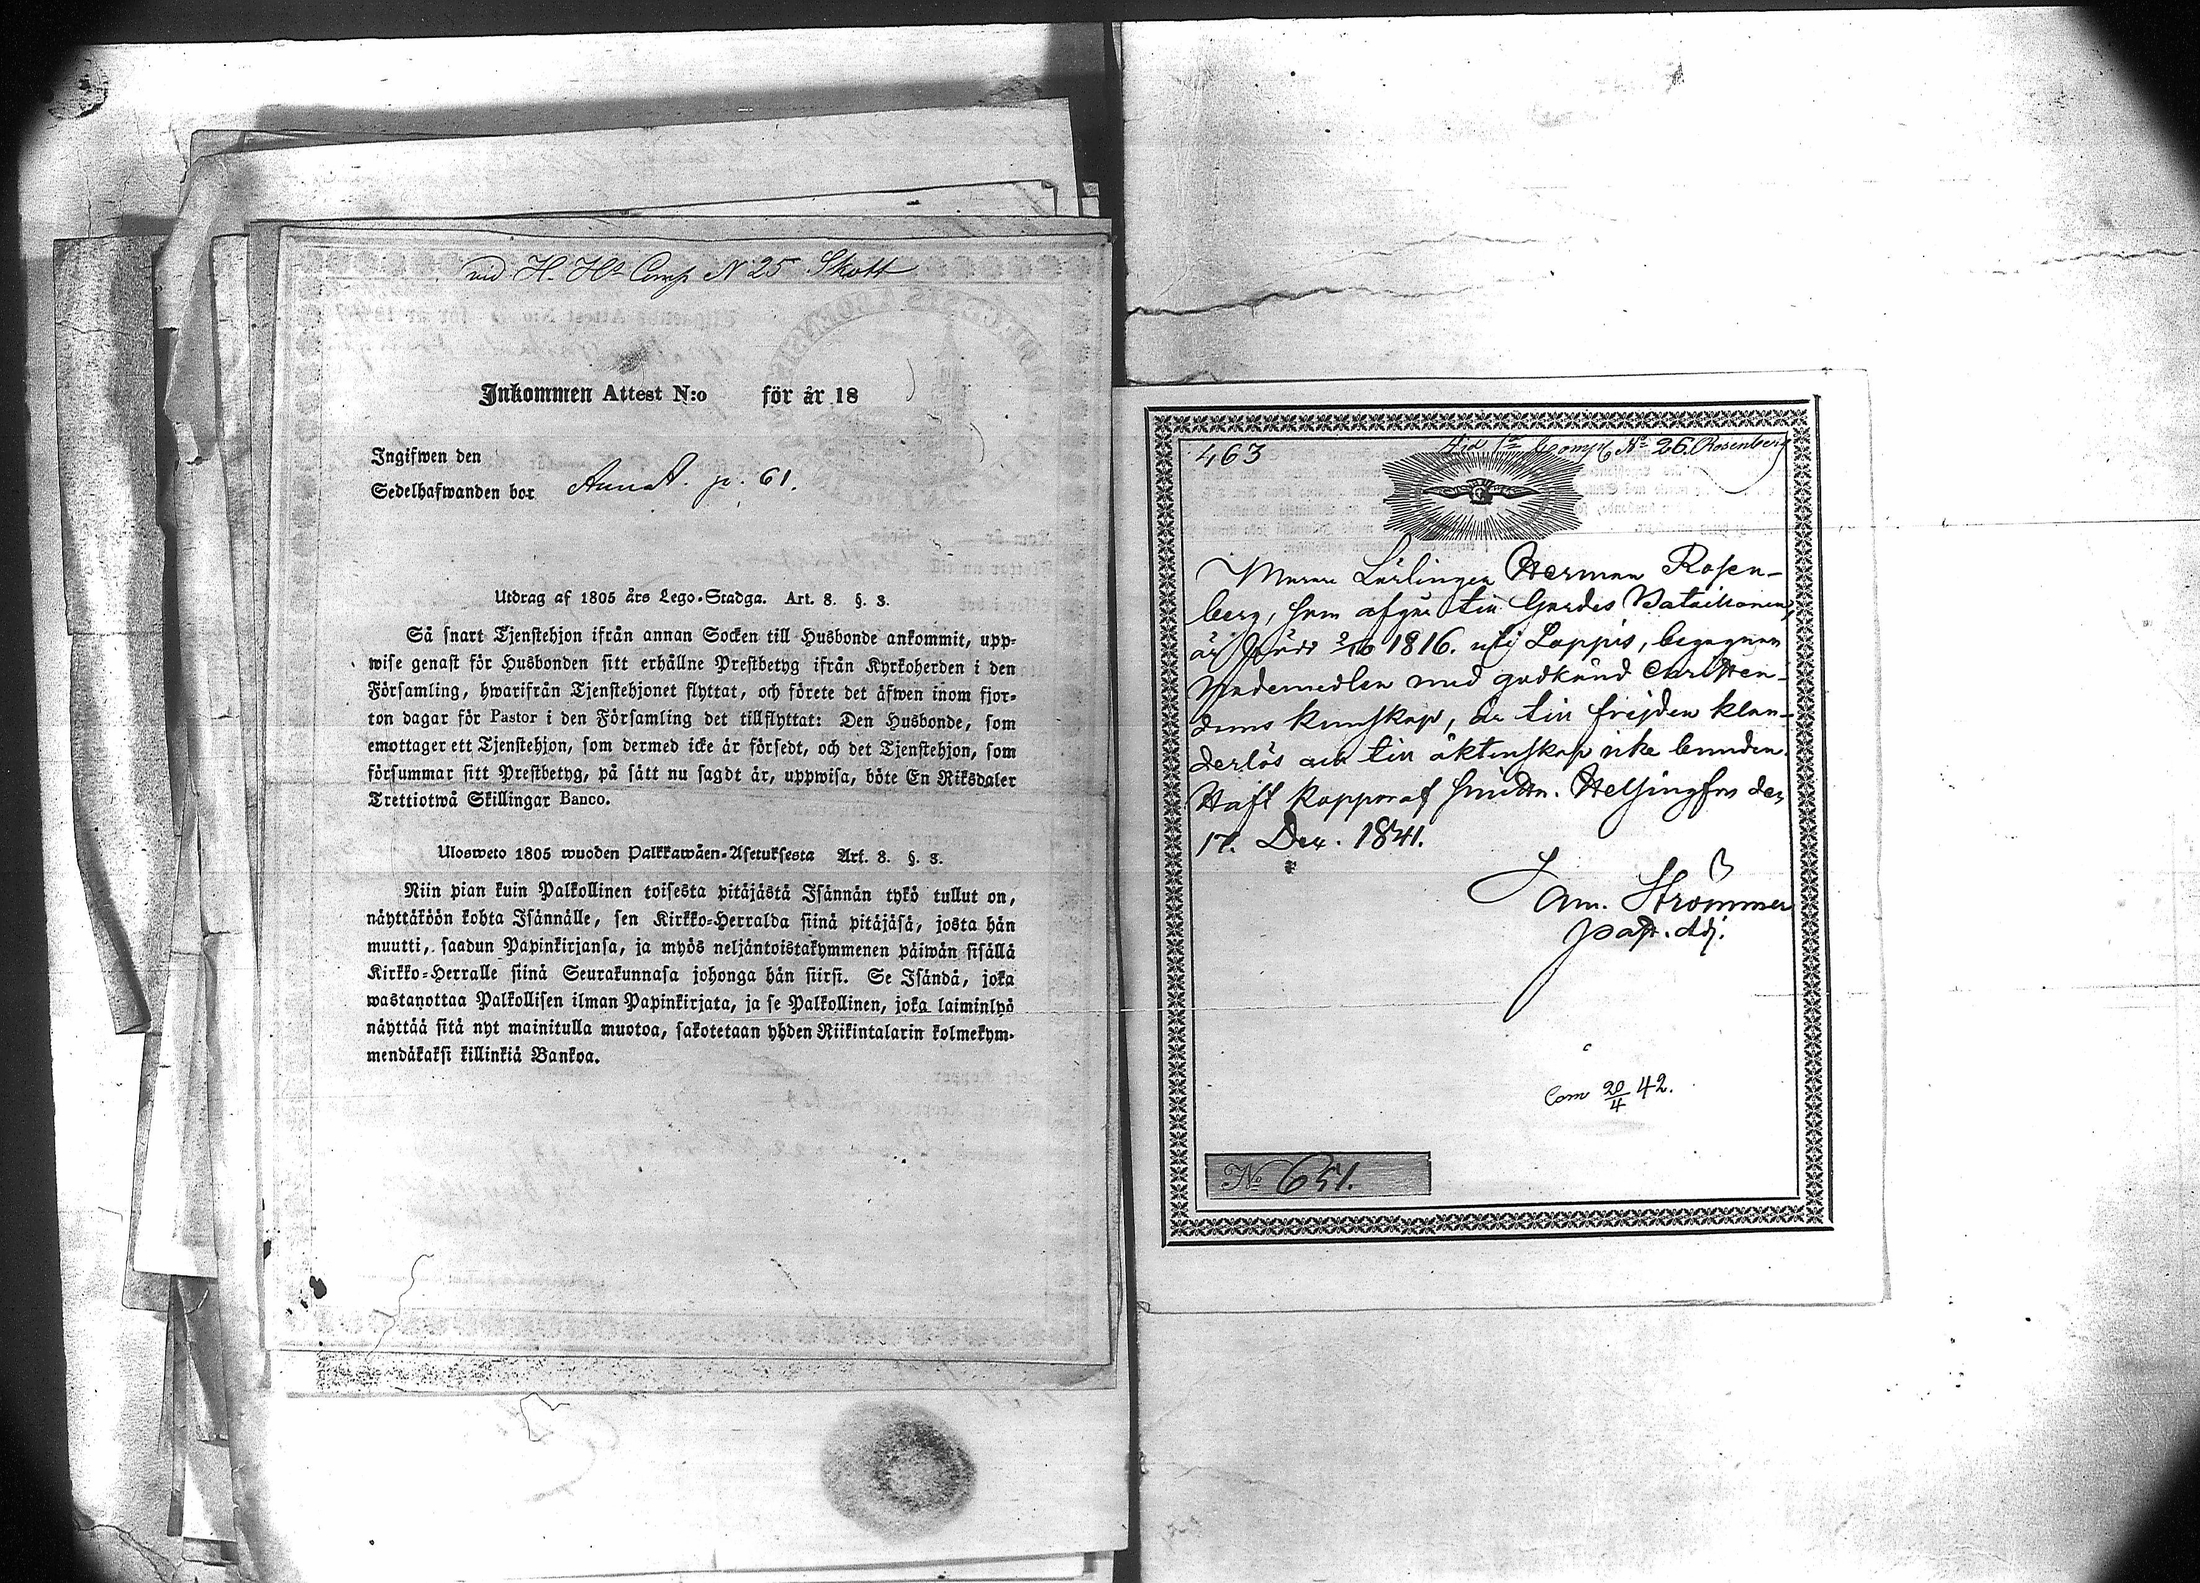 vid H. Ht Comp N 25 Skott
Inkommen Attest N:o för år 18
Ingifwen den
Sedelhafwanden bor Anna A. p. 61.
Utdrag af 1805 års Lego-Stadga. Art. 8. §. 3.
Så snart Tjenstehjon ifrån annan Socken till Husbonde ankommit, upp-
wise genast för Husbonden sitt erhållne Prestbetyg ifrån Kyrkoherden i den
Församling, hwarifrån Tjenstehjonet flyttat, och förete det äfwen inom fjor-
ton dagar för Pastor i den Församling det tillflyttat: Den Husbonde, som
emottager ett Tjenstehjon, som dermed icke är försedt, och det Tjenstehjon, som
försummar sitt Prestbetyg, på sätt nu sagdt är, uppwisa, böte En Riksdaler
Trettiotwå Skillingar Banco.
Ulosweto 1805 wuoden Palkkawäen-Asetuksesta Art. 8. §. 3.
Niin pian kuin Palkollinen toisesta pitäjästä Isännän tykö tullut on,
näyttäköön kohta Isännälle, sen Kirkko-Herralda siinä pitäjäsä, josta hän
muutti, saadun Papinkirjansa, ja myös neljäntoistakymmenen päiwän sisällä
Kirkko-Herralle siinä Seurakunnasa johonga hän siirsi. Se Isändä, joka
wastanottaa Palkollisen ilman Papinkirjata, ja se Palkollinen, joka laiminlyö
näyttää sitä nyt mainitulla muotoa, sakotetaan yhden Riikintalarin kolmekym-
mendäkaksi killinkiä Bankoa.
463
vid 1a Comp. No 26. Rosenberg
Murare Lärlingen Herman Rosen-
berg, som afgår till Gardes Bataillonen,
är född 1816. uti Loppis, begagnar
Nådemedlen med godkänd Christen-
doms kunskap, är till frejden klan-
derlös och till äktenskap icke bunden.
Haft koppor af smitta. Helsingfors den
17. Dec. 1841.
Strömmer
past. Adj.
Com 20/4 42.
No 651.